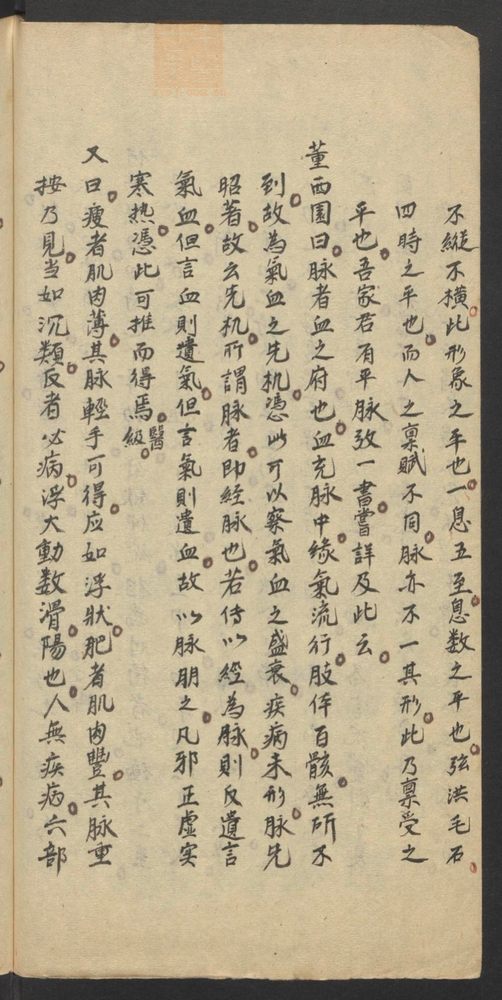 不縱不橫此形象之平也一息五至息数之平也弦洪毛石
四時之平也而人之禀賦不同脉亦不一其形此乃禀受之
平也吾家君有平脉攷一書嘗詳及此云
董西園曰脉者血之府也血充脉中缘氣流行肢体百骸無所不
到故為氣血之先机憑此可以察氣血之盛衰疾病未形脉先
昭著故云先机所謂脉者即經脉也若传以經為脉則反遺言
氣血但言血則遺氣但言氣則遺血故以脉朋之凡邪正虚实
寒热憑此可推而得焉醫級
又曰瘦者肌肉薄其脉輕手可得应如浮狀肥者肌肉豐其脉重
按乃見当如沉類反者必病浮大動数滑陽也人無疾病六部